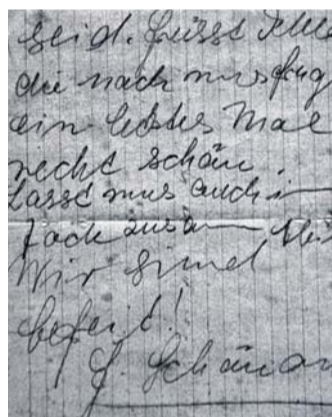 seid. Grüsst Alle
die nach uns frag
ein letztes Mal
recht schön.
Lasst uns auch i
Tode zusa
Wir sind
befreit!
G. Schönan